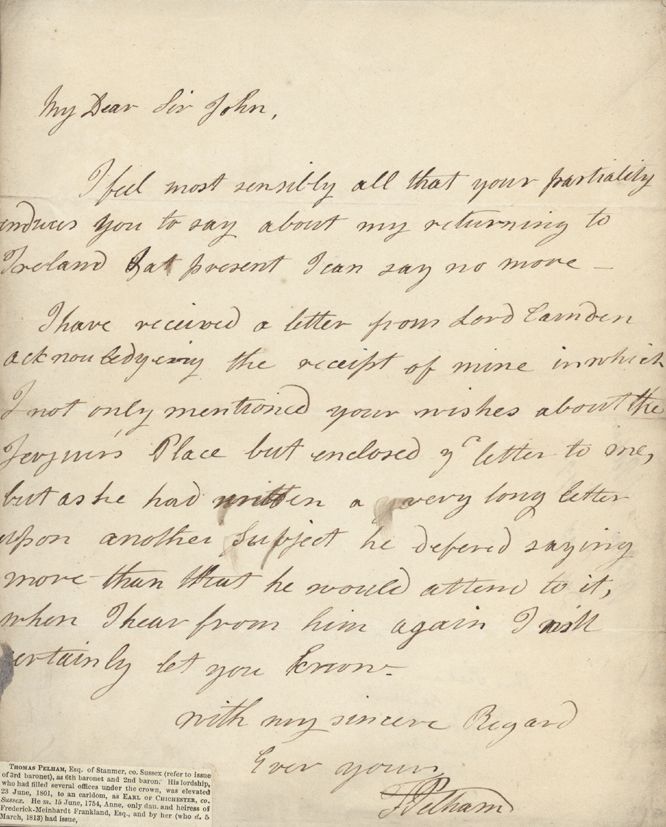 My Dear Sir John,
I feel most sensibly all that your partiality
induces you to say about my returning to
Ireland but at present I can say no more —
I have received a letter from Lord Camden
acknowledgeing the receipt of mine in which
I not only mentioned your wishes about the
Place but enclosed yr letter to me,
but as he had written a very long letter
upon another subject he defered saying
more than that he would attend to it,
when I hear from him again I will
certainly let you know.
with my sincere Regard
Ever yours
TPelham
THOMAS PELHAM, Esq. of Stanmer, co. Sussex (refer to issue
of 3rd baronet), as 6th baronet and 2nd baron. His lordship,
who had filled several offices under the crown, was elevated
23 June, 1801, to an earldom, as EARL OF CHICHESTER, co.
Sussex. He m. 15 June, 1754, Anne, only dau. and heiress of
Frederick-Meinhardt Frankland, Esq., and by her (who d. 5
March, 1813) had issue,